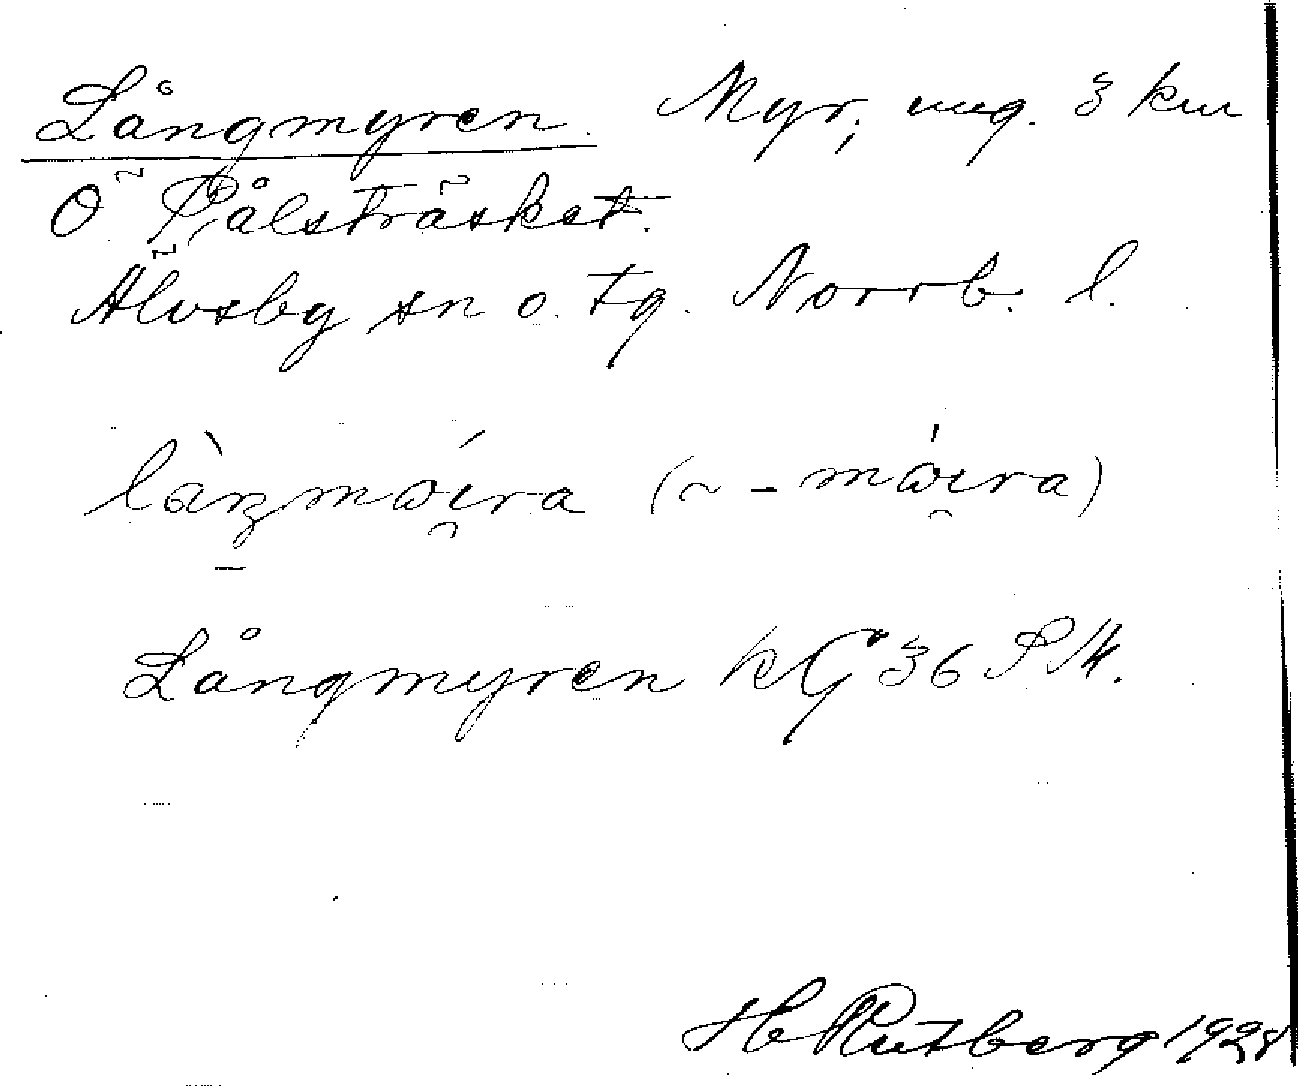 Långmyren. Myr, ung. 3 km
Ö Pålsträsket.
Älvsby sn o. tg. Norrb. l.
(~ -
Långmyren kG 36 SM.
H Rutberg 1928